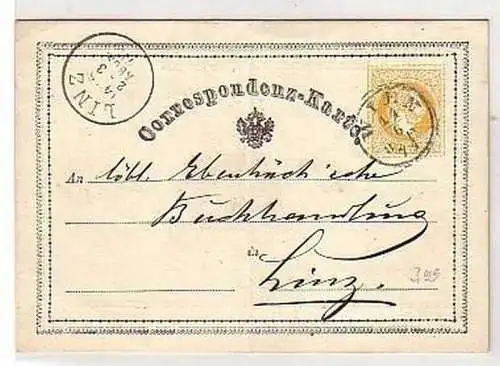 LINZ
24
3
Correspondenz-Karte.
WIEN
An löbl. Ebenhöch'sche
Buchhandlung
in
Linz.